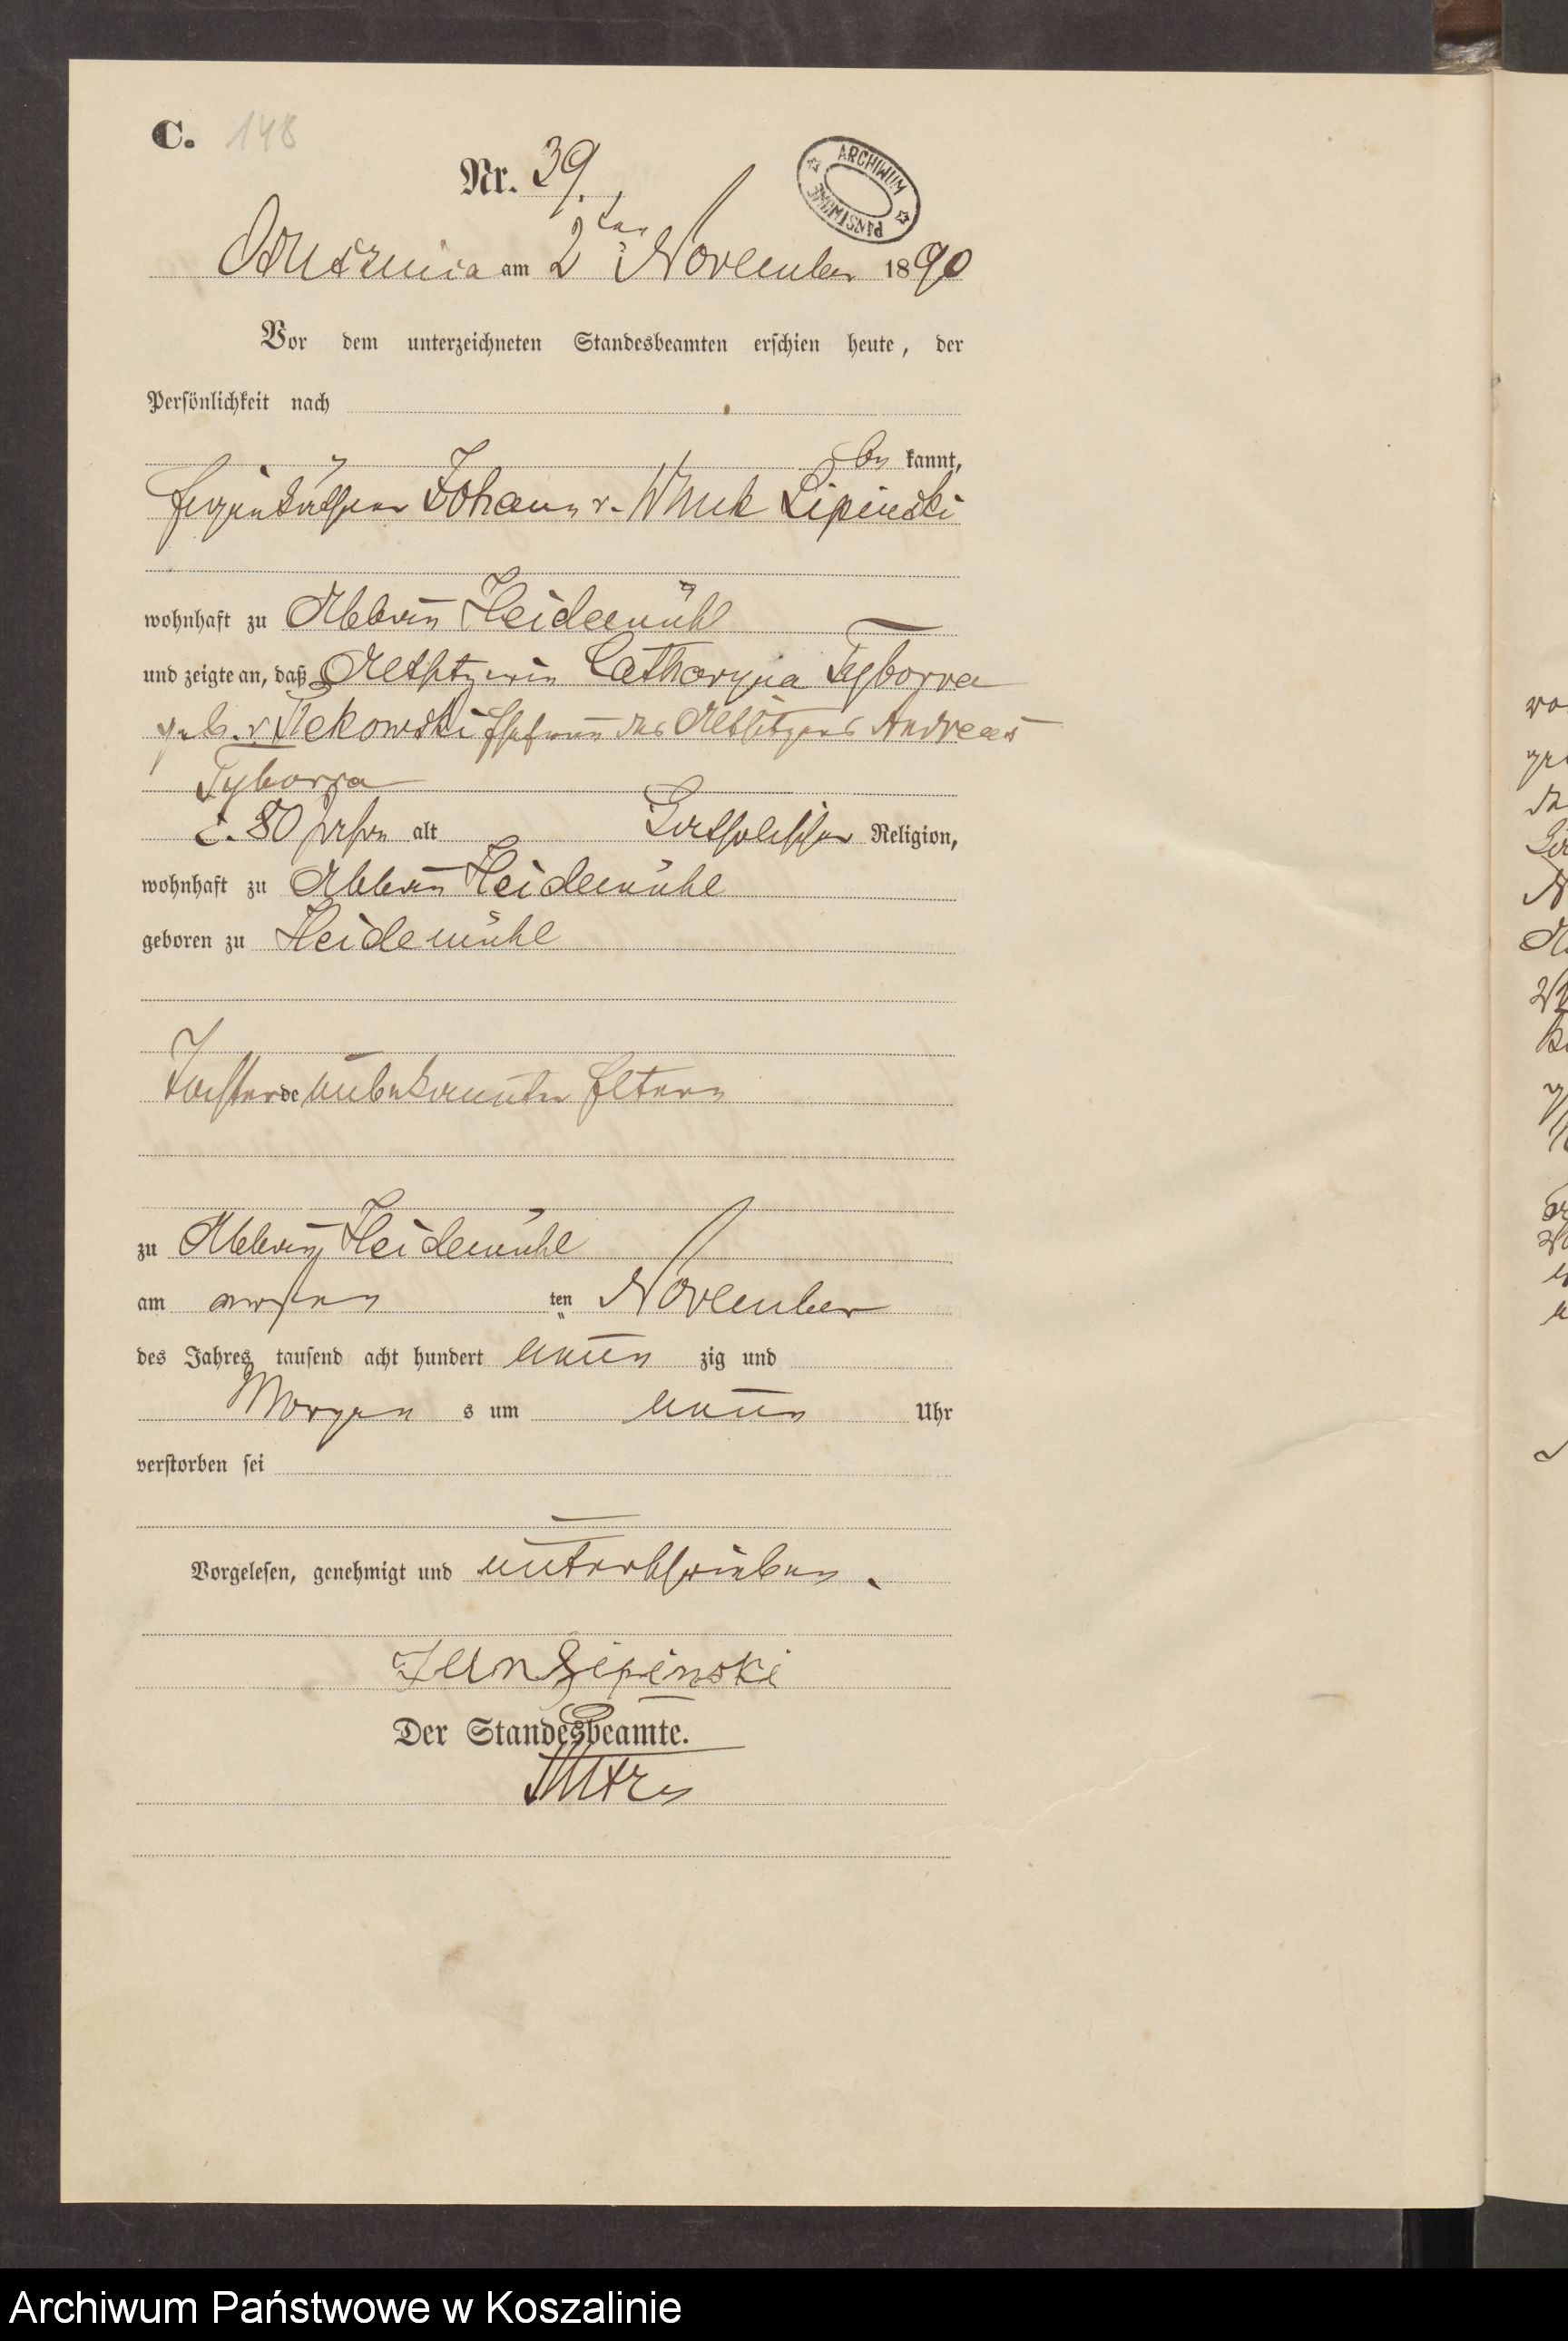 C. 148
Nr. 39.
ARCHIWUM PAŃSTWOWE
am 2ten November 1890
Vor dem unterzeichneten Standesbeamten erschien heute, der
Persönlichkeit nach
be kannt,
Eigenkäthner Johann v. Wnuk Lipinski
wohnhaft zu Abbau Heidemühl
und zeigte an, daß Altsitzerin Catharyna Tyborra
geb. v. Rekowski Ehefrau des Altsitzers Andreas
Tyborra
c. 80 Jahre alt Katholischer Religion,
wohnhaft zu Abbau Heidemühl
geboren zu Heidemühl
Tochter de unbekannter Eltern
zu Abbau Heidemühl
am ersten ten November
des Jahres tausend acht hundert neun zig und
Morgen s um neun Uhr
verstorben sei
Vorgelesen, genehmigt und unterschrieben.
Jan Lipinski
Der Standesbeamte.
Archiwum Państwowe w Koszalinie